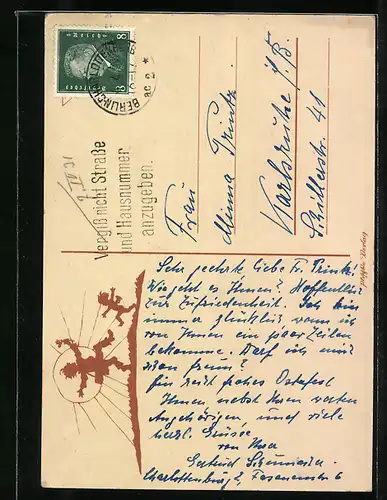 8 Deutsches Reich 8
BERLIN-CHARLOTTENBURG
ac 2 *
Vergiß nicht Straße
und Hausnummer
anzugeben.
Frau
Minna Trunk
Karlsruhe i/B.
Schillerstr. 41
Sehr geehrte, liebe Fr. Trunk!
Wie geht es Ihnen? Hoffentlich
zur Zufriedenheit. Ich bin
immer glücklich wenn ich
von Ihnen ein paar Zeilen
bekomme. Darf ich mich
freun?
Ein recht frohes Osterfest
Ihnen nebst Ihren werten
Angehörigen und viele
herzl. Grüsse
von Ihrer
Gertrud
Charlottenburg 2, Fasanenstr. 6